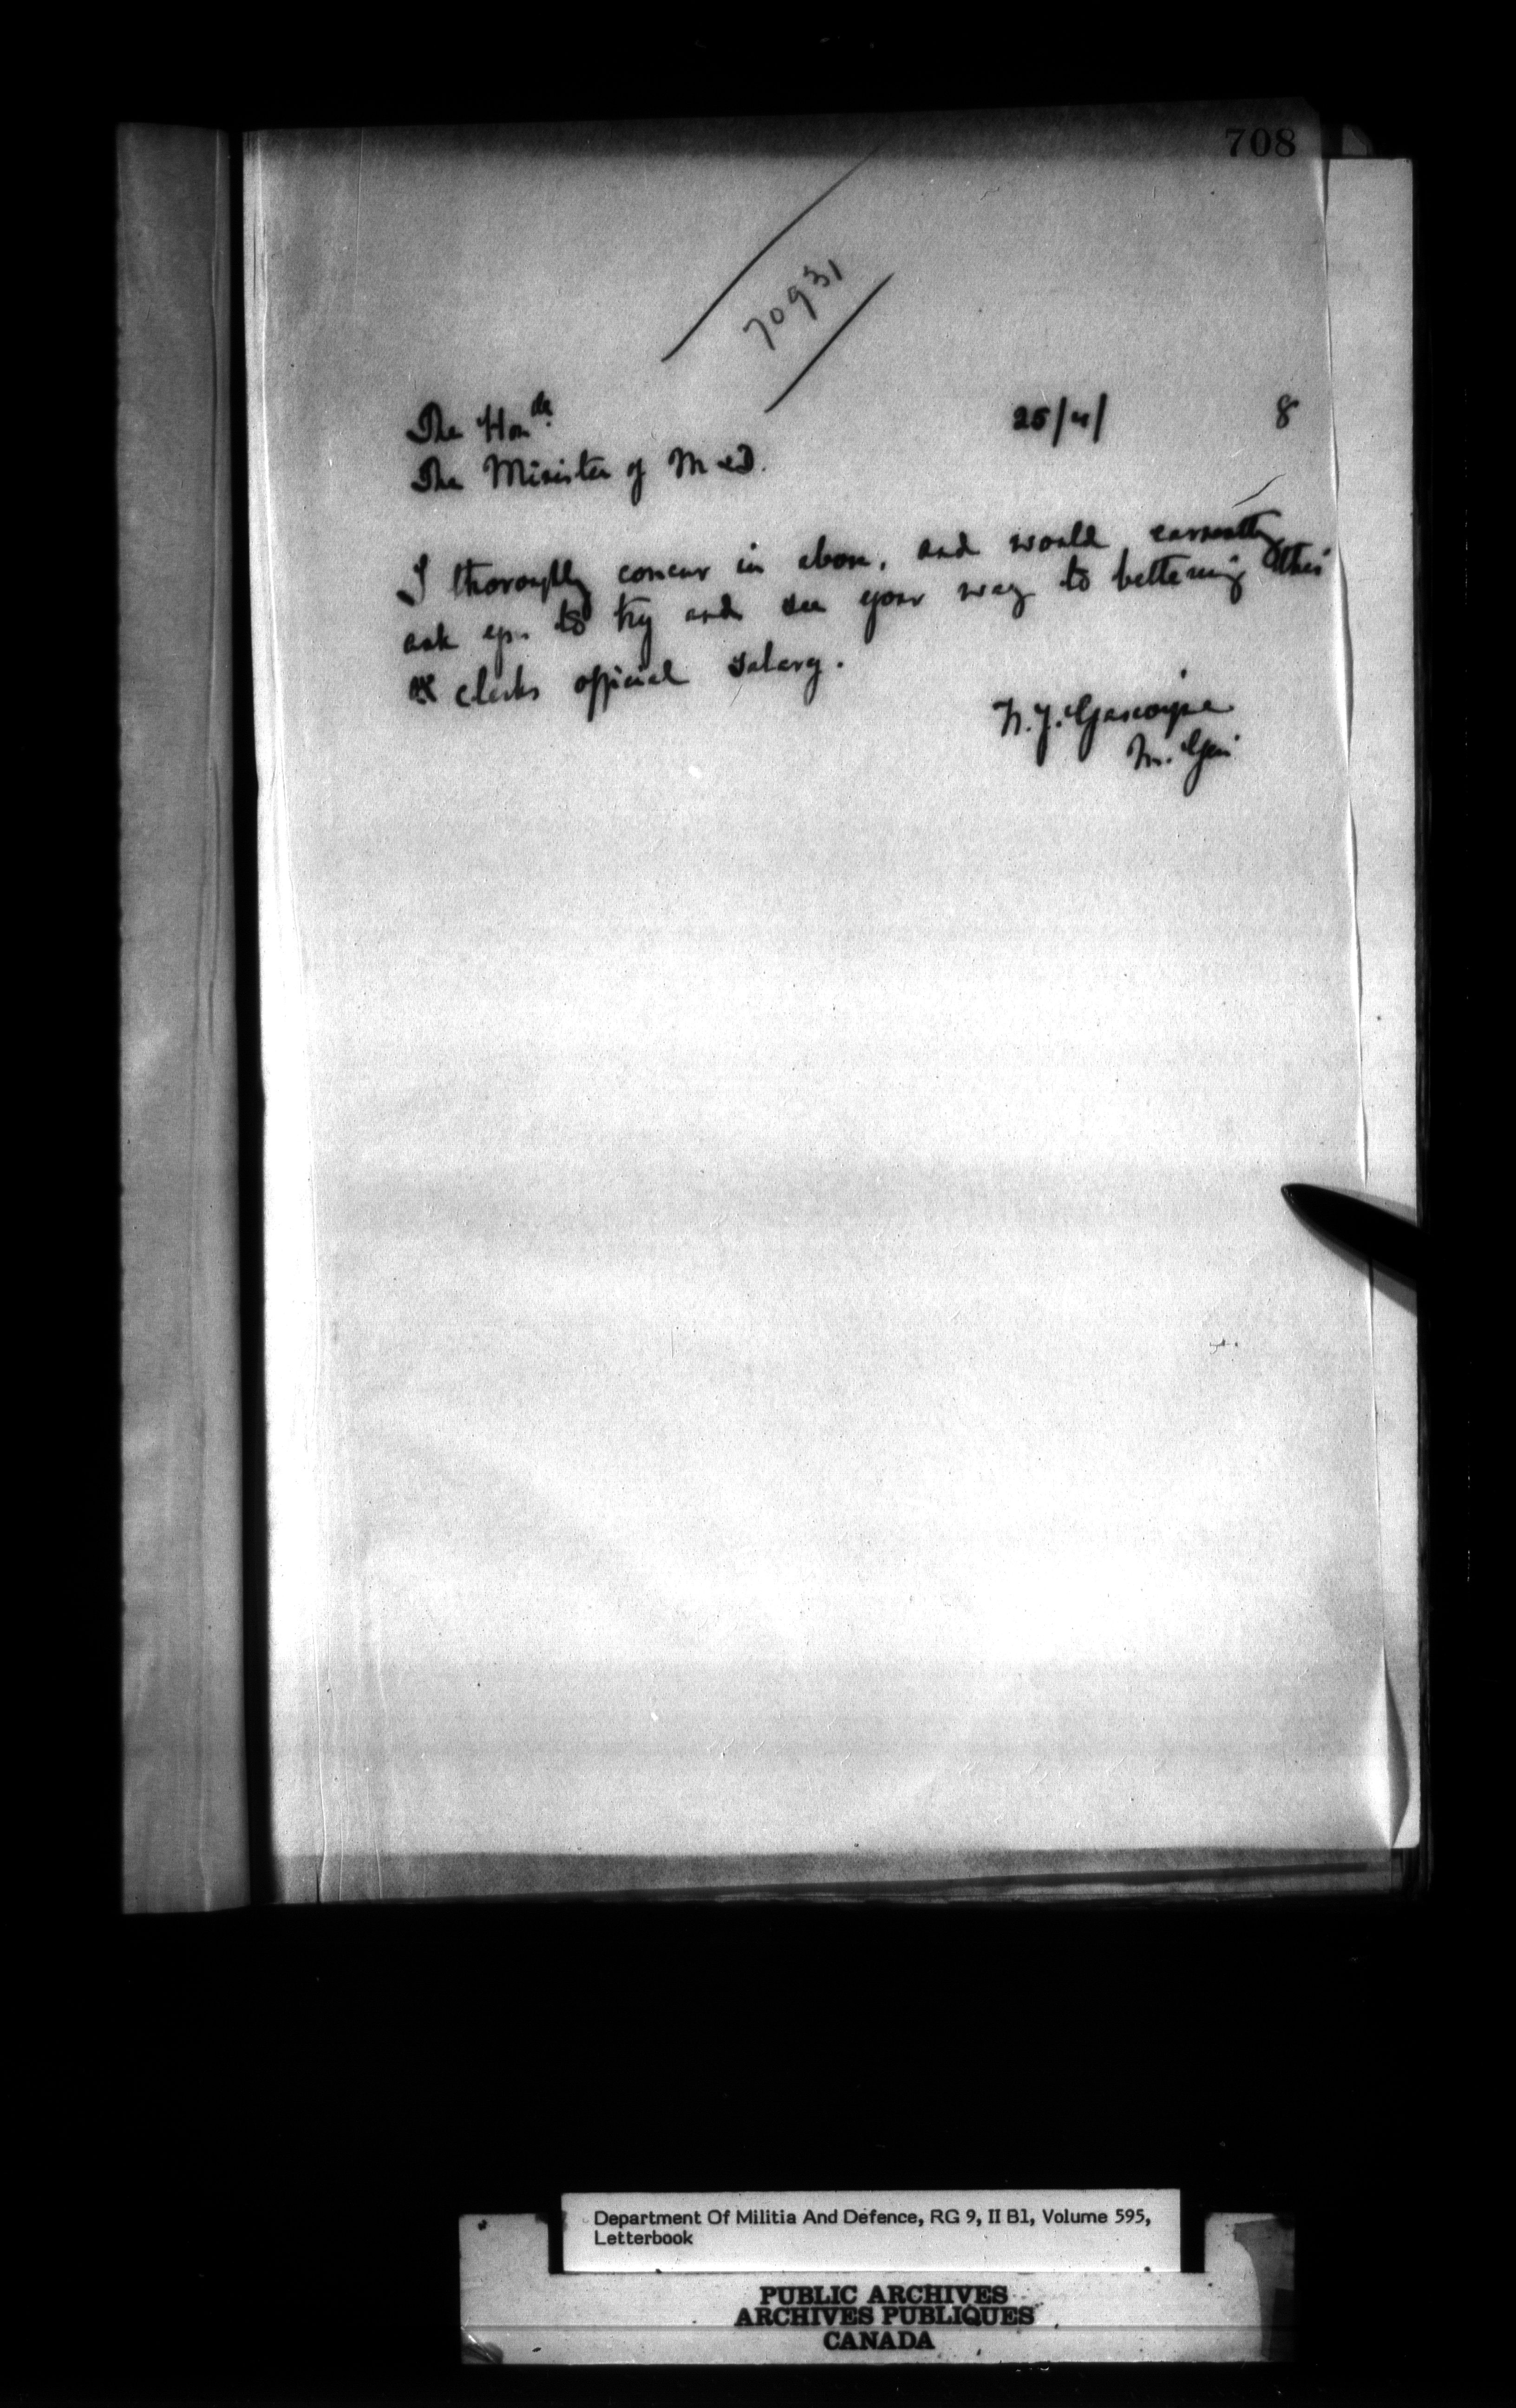 708
70931
The Honble 25/4/ 8
The Minister of M & D.
I thoroughly concur in above, and would earnestly
ask you to try and see your way to bettering this
clerks official salary.
W.J. Gascoigne
M. Gen
Department Of Militia And Defence, RG 9, II B1, Volume 595,
Letterbook
PUBLIC ARCHIVES
ARCHIVES PUBLIQUES
CANADA